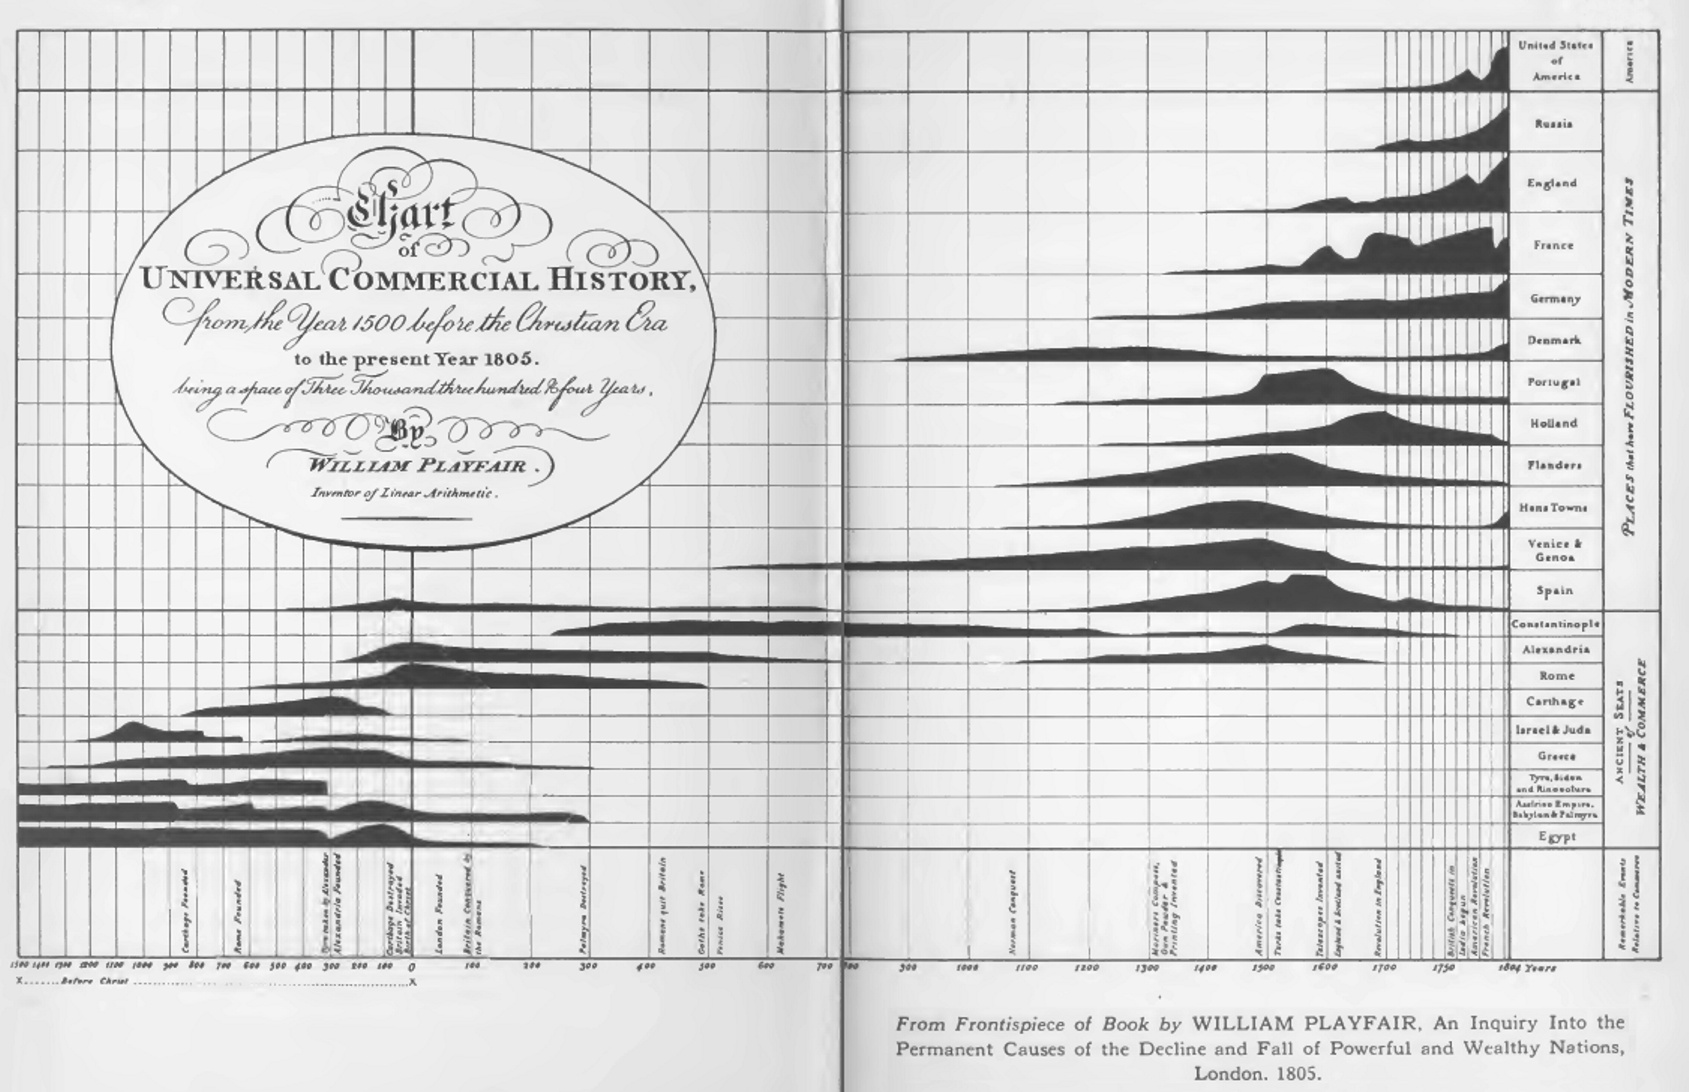 Chart
of
UNIVERSAL COMMERCIAL HISTORY,
from the Year 1500 before the Christian Era
to the present Year 1805.
being a space of Three Thousand three hundred & four Years,
By
WILLIAM PLAYFAIR.
Inventor of Linear Arithmetic.
United States
of
America
Russia
England
France
Germany
Denmark
Portugal
Holland
Flanders
Hans Towns
Venice &
Genoa
Spain
Constantinople
Alexandria
Rome
Carthage
Israel & Juda
Greece
Tyre, Sidon
and Rinocolura
Assirian Empire,
Babylon & Palmyra
Egypt
America
PLACES that have FLOURISHED in MODERN TIMES
ANCIENT SEATS
of
WEALTH & COMMERCE
Remarkable Events
Relative to Commerce
Carthage Founded
Rome Founded
Tyre taken by Alexander
Alexandria Founded
Carthage Destroyed
Britain Invaded
Birth of Christ
London Founded
Britain Conquered by
the Romans
Palmyra Destroyed
Romans quit Britain
Goths take Rome
Venice Rises
Mahomets Flight
Norman Conquest
Mariners Compass,
Gun Powder &
Printing Invented
America Discovered
Turks take Constantinople
Telescopes Invented
England & Scotland united
Revolution in England
British Conquests in
India begun
American Revolution
French Revolution
1500 1400 1300 1200 1100 1000 900 800 700 600 500 400 300 200 100 0 100 200 300 400 500 600 700 800 900 1000 1100 1200 1300 1400 1500 1600 1700 1750 1804 Years
X.......Before Christ.......X
From Frontispiece of Book by WILLIAM PLAYFAIR, An Inquiry Into the
Permanent Causes of the Decline and Fall of Powerful and Wealthy Nations,
London. 1805.